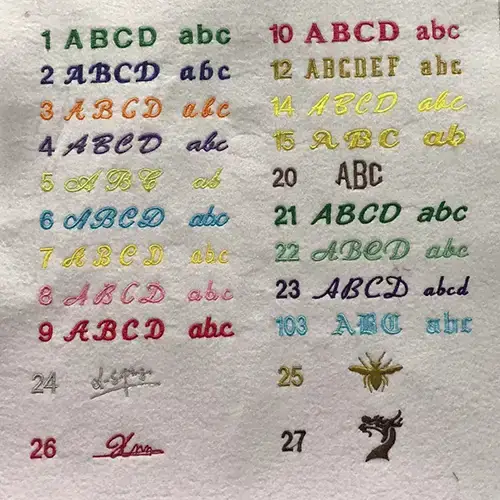 1 ABCD abc
2 ABCD abc
3 ABCD abc
4 ABCD abc
5 ABC ab
6 ABCD abc
7 ABCD abc
8 ABCD abc
9 ABCD abc
24
26
10 ABCD abc
12 ABCDEF abc
14 ABCD abc
15 ABC ab
20 ABC
21 ABCD abc
22 ABCD abc
23 ABCD abcd
103 ABC abc
25
27